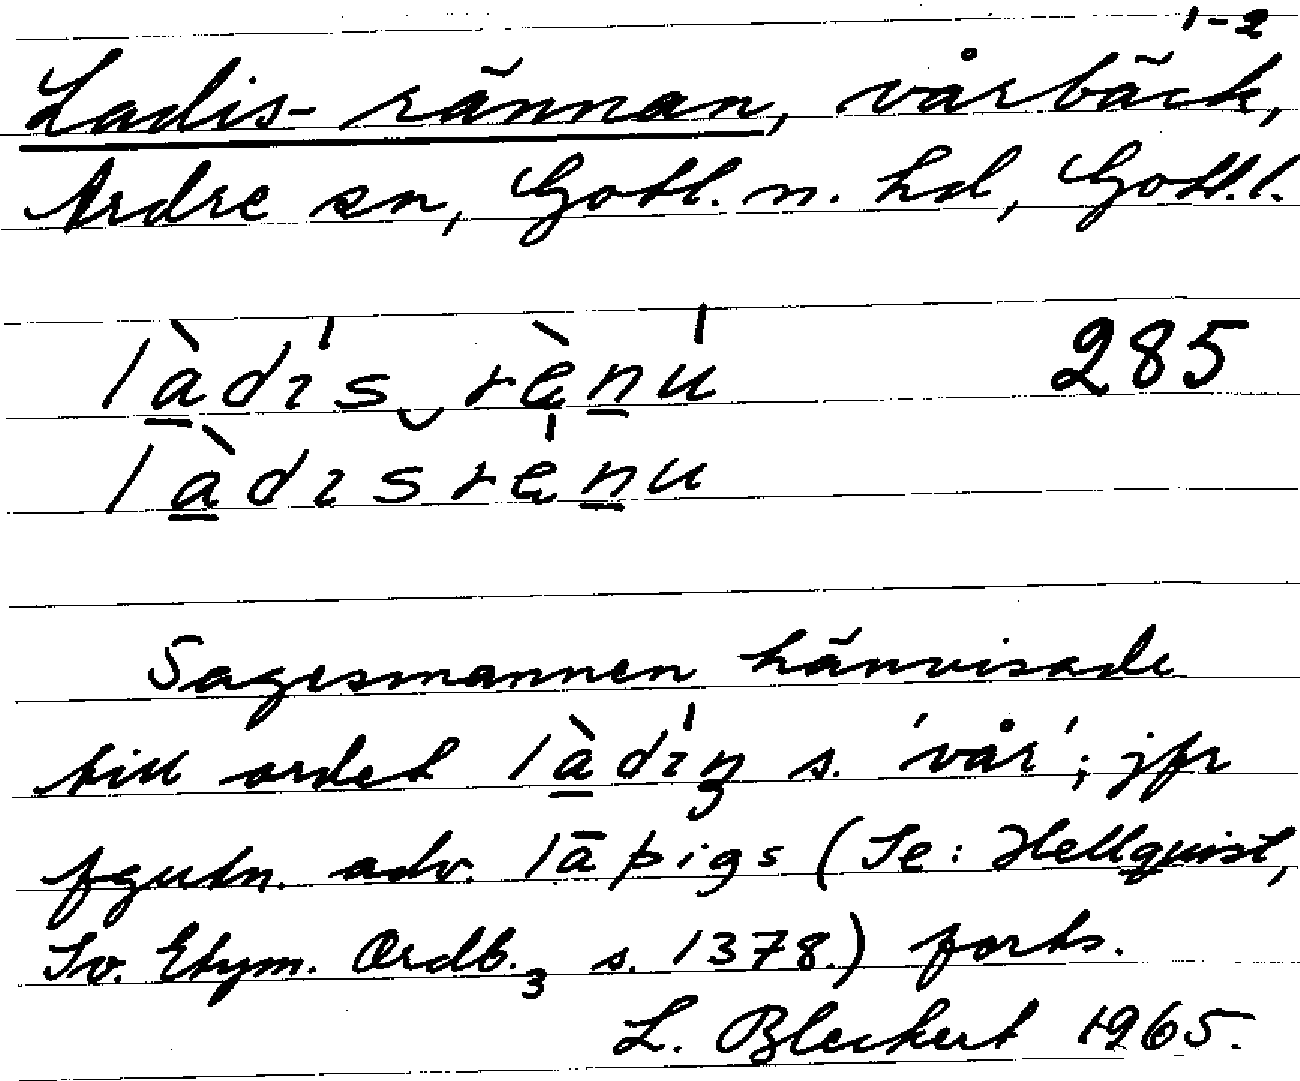 1-2
Ladis-rännan, vårbäck,
Ardre sn, Gotl. n. hd, Gotl. l.
là̱dı̍s‿rè̱ṉu̍ 285
là̱dısrė̱ṉu
Sagesmannen hänvisade
till ordet là̱dı̍ŋ s. 'vår'; jfr
fgutn. adv. lāþigs (Se: Hellquist,
Sv. Etym. Ordb.₃ s. 1378.) forts.
L. Bleckert 1965.